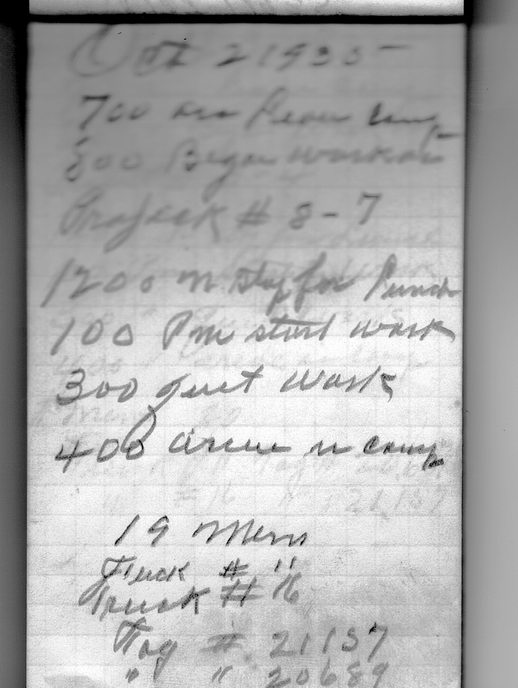 Oct 2 1935
700 am Leave camp
800 Began work on
Project # 8-7
1200 m stop for Lunch
100 Pm start work
300 quit work
400 arive in camp
19 Mens
Truck # 11
Truck # 16
Tag #. 21137
" " 20689